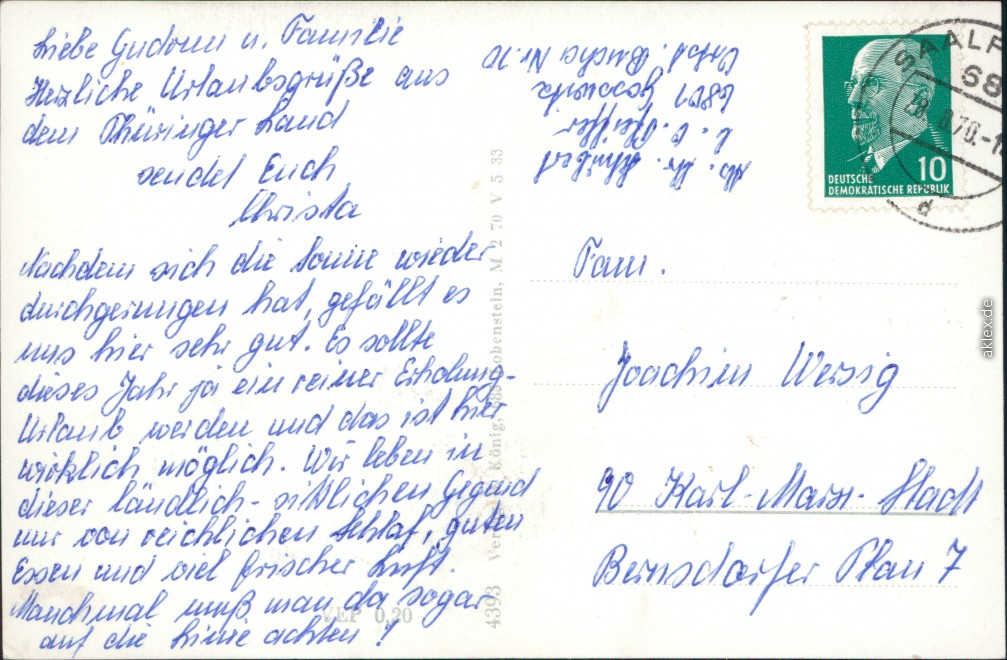 Liebe Gudrun u. Familie
Herzliche Urlaubsgrüße aus
dem Thüringer Land
sendet Euch
Christa
Nachdem sich die Sonne wieder
durchgerungen hat, gefällt es
uns hier sehr gut. Es sollte
dieses Jahr ja ein reiner Erholung-
Urlaub werden und das ist hier
wirklich möglich. Wir leben in
dieser ländlich-sittlichen Gegend
nur von reichlichen Schlaf, guten
Essen und viel frischer Luft.
Manchmal muß man da sogar
auf die Linie achten!
Abs. Chr. Schubert
b. E. Pfeiffer
6801
Ortst. Bucha Nr. 10
Fam.
Joachim Wersig
90 Karl-Marx-Stadt
Bernsdorfer Plan 7
10
DEUTSCHE
DEMOKRATISCHE REPUBLIK
SAALF
68
70.-1
d
4393 König, obenstein, M 2 70 V 5 33
VEP 0,20
aklex.de